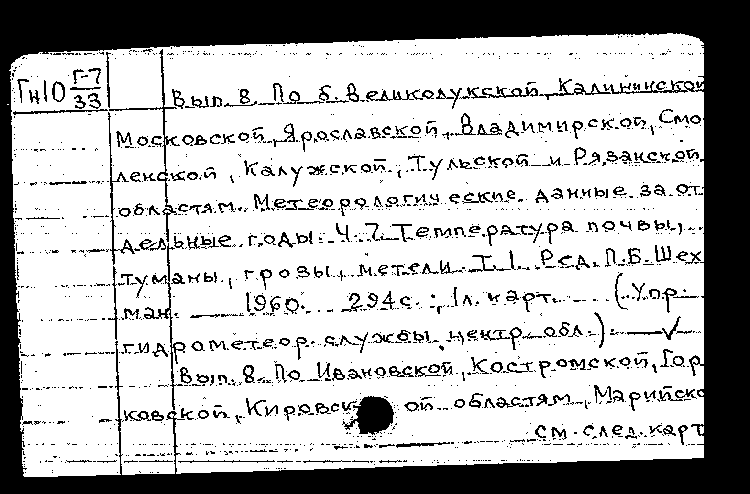 Гн10 Г-7/33
Вып. 8. По б. Великолукской, Калининской
Московской, Ярославской, Владимирской, Смо
ленской, Калужской, Тульской и Рязанской
областям. Метеорологические данные за от
дельные годы. Ч. 7. Температура почвы,
туманы, грозы, метели. Т. 1. Ред. П.Б. Шех
ман. 1960. 294 с.; 1 л. карт. (Упр.
гидрометеор. службы центр. обл.). ✓
Вып. 8. По Ивановской, Костромской, Гор
ковской, Кировской областям, Марийско
см. след. карт